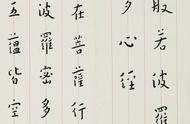 般若波羅
多心經
在菩薩行
波羅密多
五蘊皆空